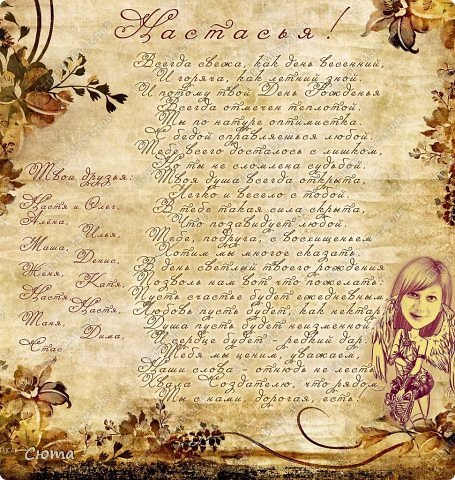 Настасья!
Всегда свежа, как день весенний,
И горяча, как летний зной.
И потому твой День Рожденья
Всегда отмечен теплотой.
Ты по натуре оптимистка.
С бедой справляешься любой.
Тебе всего досталось с лишком,
Но ты не сломлена судьбой.
Твоя душа всегда открыта,
Легко и весело с тобой.
В тебе такая сила скрыта,
Что позавидует любой.
Тебе, подруга, с восхищеньем
Хотим мы многое сказать.
В день светлый твоего рождения
Позволь нам вот что пожелать:
Пусть счастье будет ежедневным,
Любовь пусть будет, как нектар.
Душа пусть будет неизменной,
Сердце будет - редкий дар.
Тебя мы ценим, уважаем,
Наши слова - отнюдь не лесть.
Хвала Создателю, что рядом
Ты с нами, дорогая, есть!
Твои друзья:
Настя и Олег,
Алёна,
Илья,
Маша,
Денис,
Женя,
Катя,
Настя
Настя,
Таня,
Дима,
Стас
Сюта